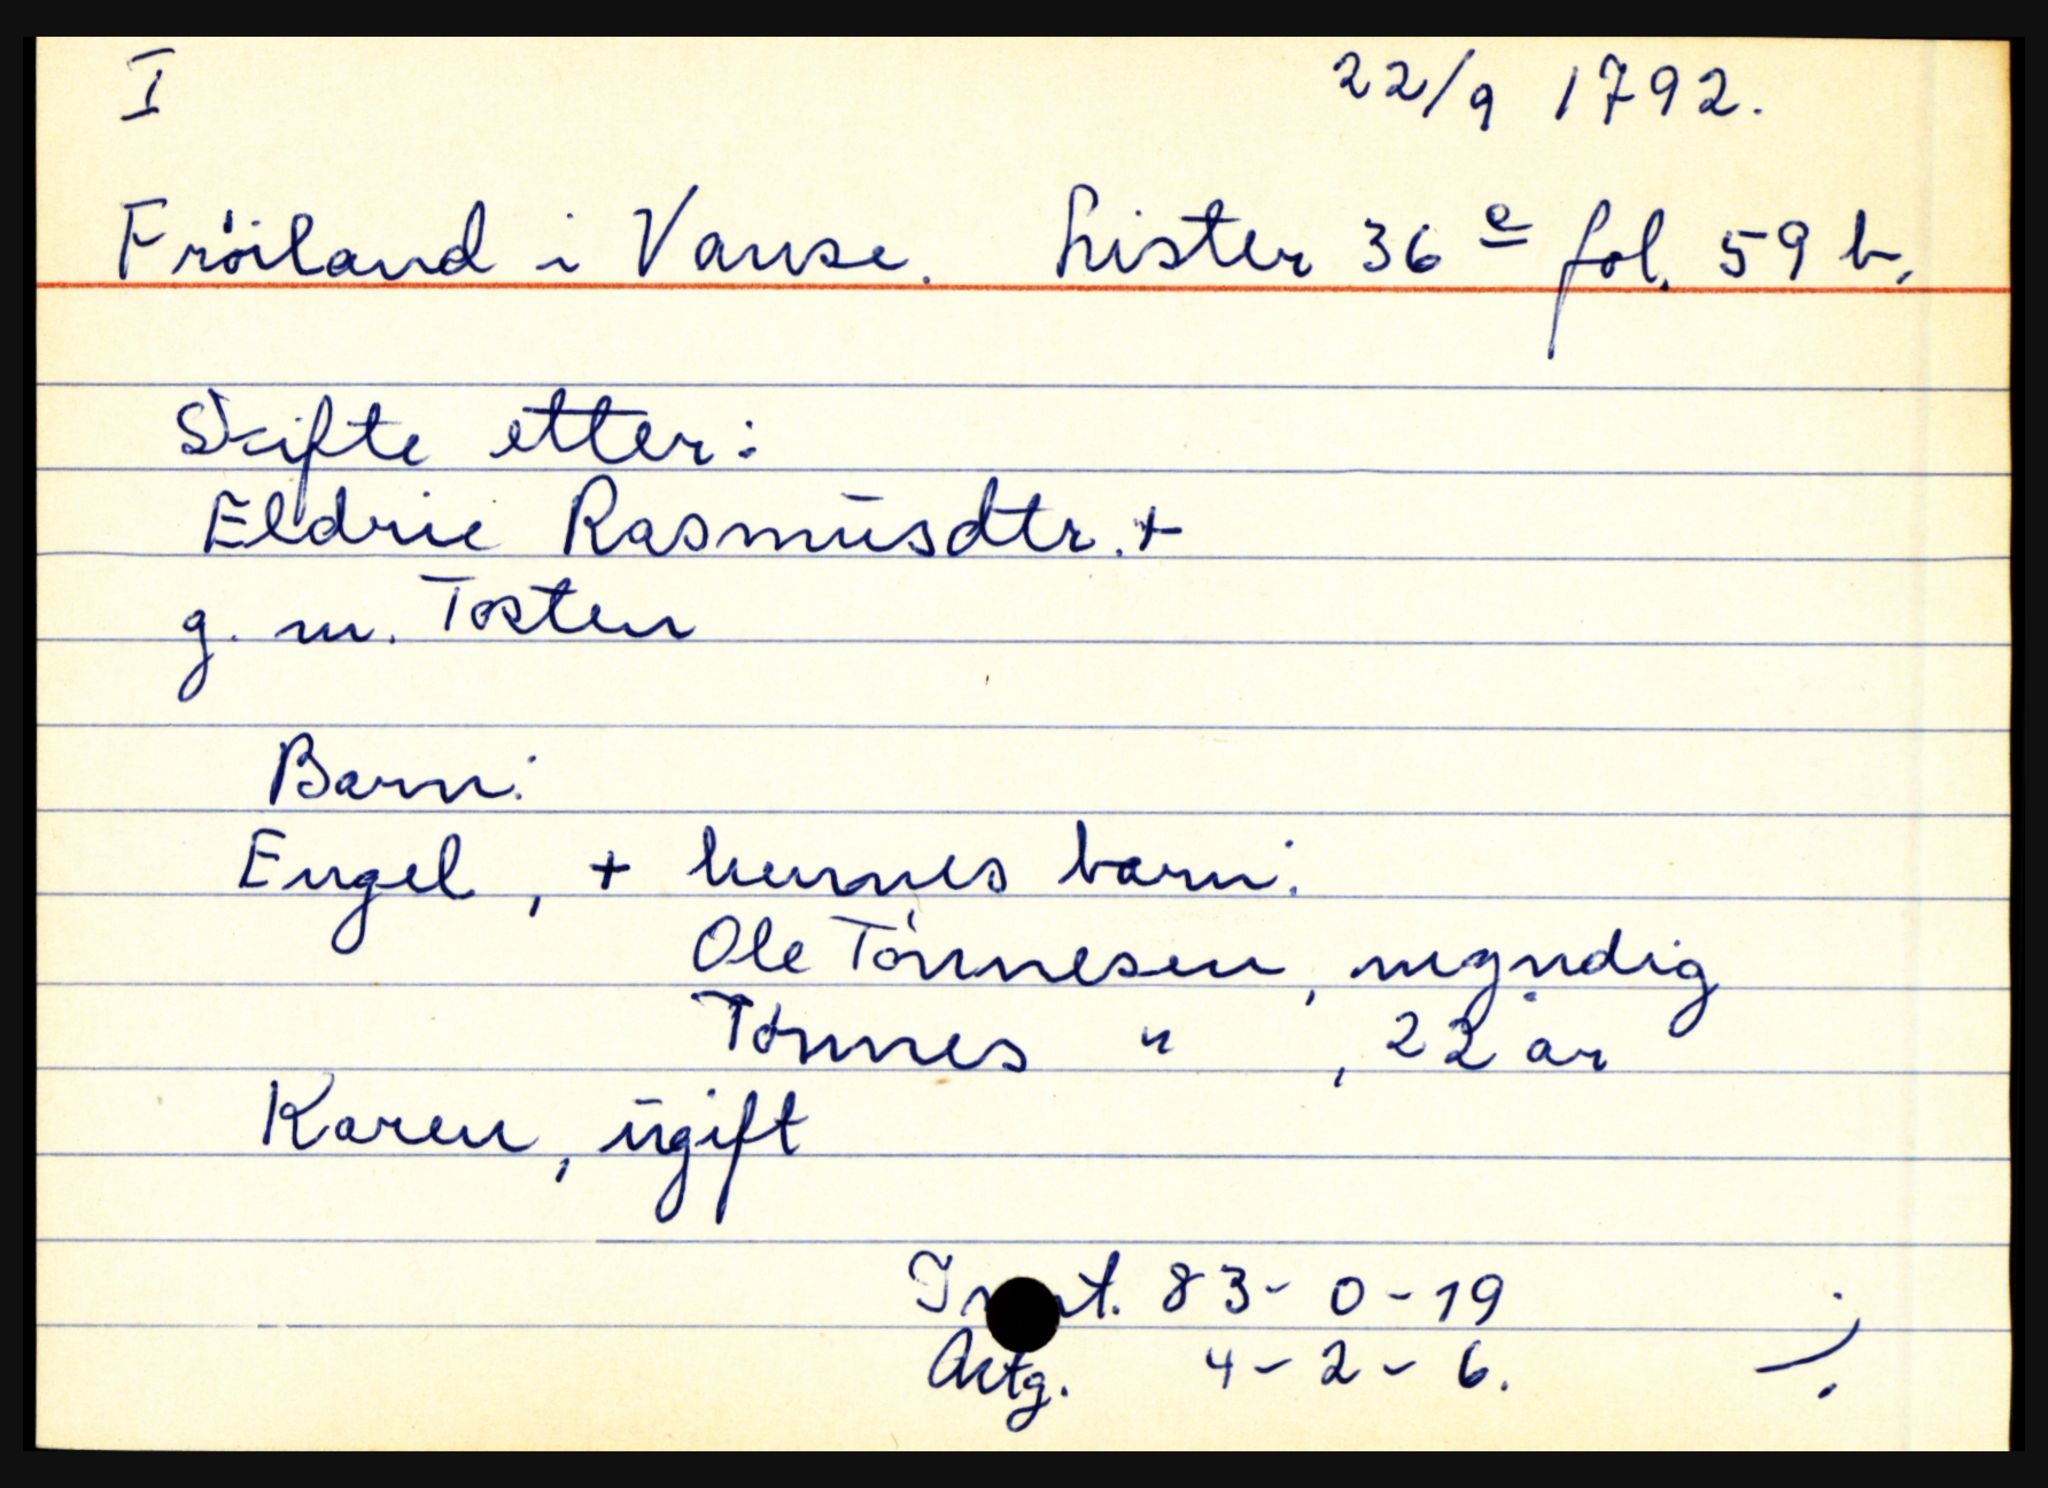 I 22/9 1792.
Fröiland i Vanse. Lister 36 e fol. 59 b.
Skifte etter:
Eldrie Rasmusdtr. +
g. m. Tosten
Barn:
Engel, + hennes barn:
Ole Tönnesen, myndig
Tönnes " , 22 år
Karen, ugift
83 - 0 - 19
4 - 2 - 6.